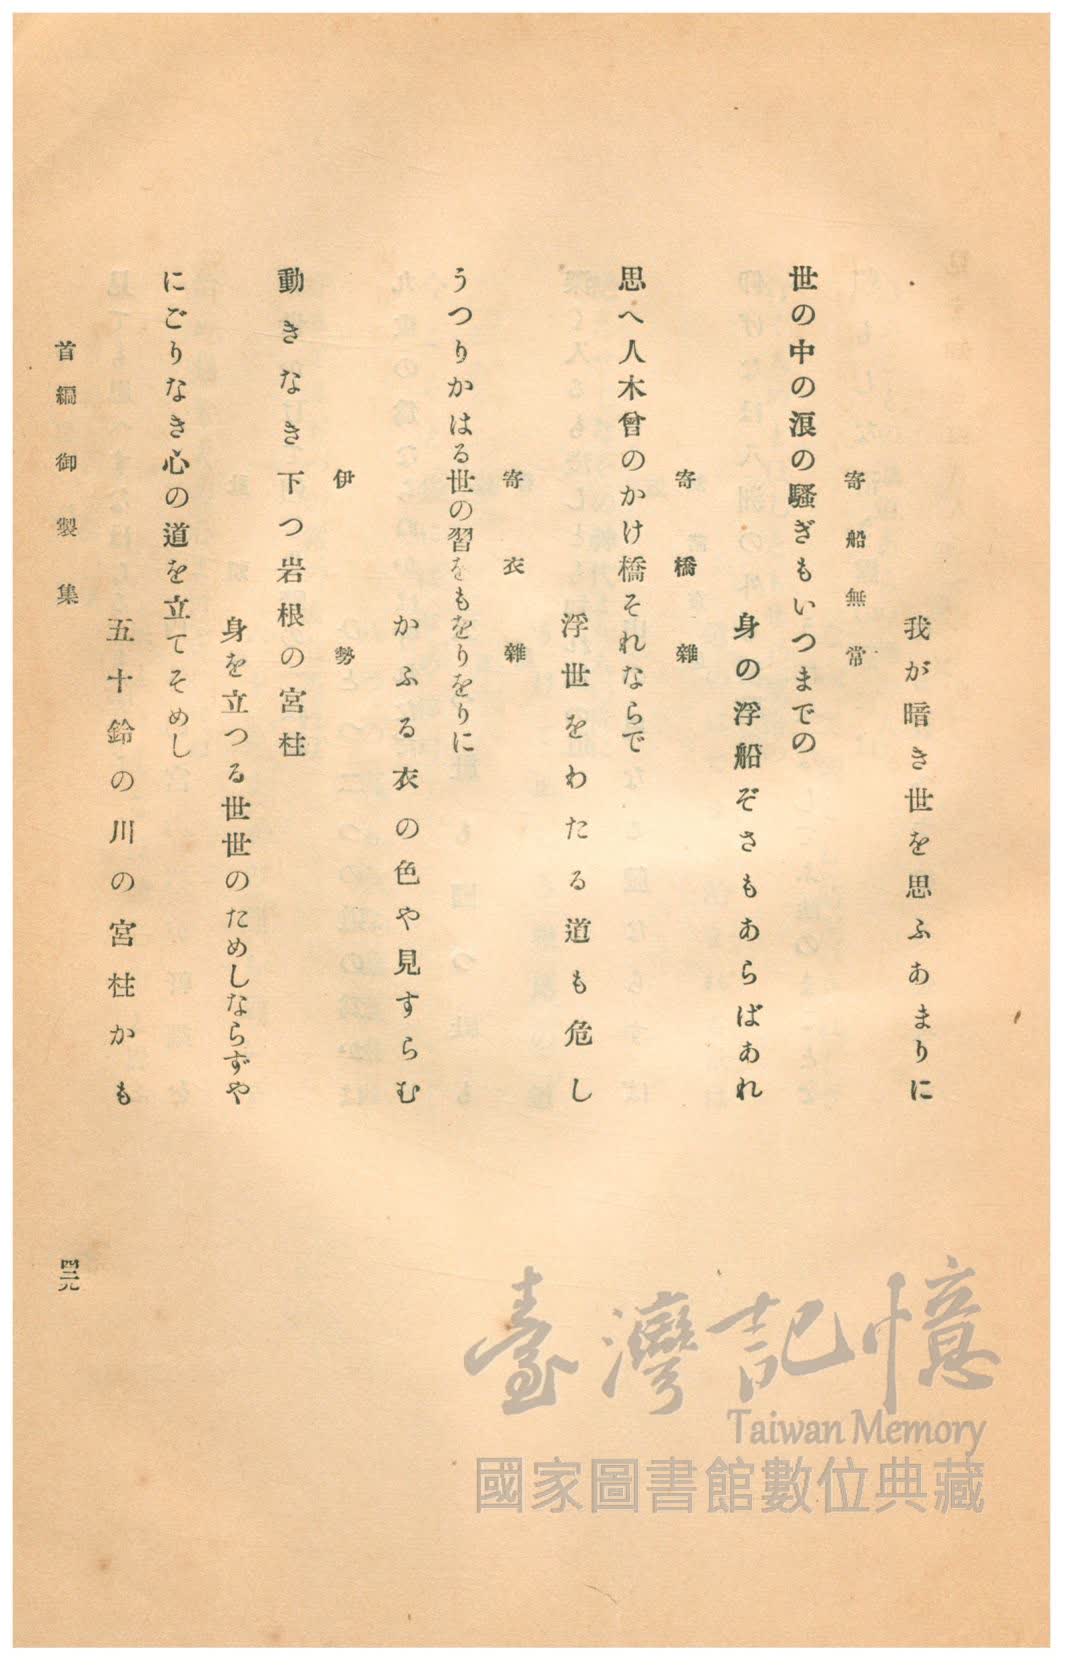 我が暗き世を思ふあまりに
寄船無常
世の中の浪の騷ぎもいつまでの
身の浮船ぞさもあらばあれ
寄橋雜
思へ人木曾のかけ橋それならで
浮世をわたる道も危し
寄衣雜
うつりかはる世の習をもをりをりに
かふる衣の色や見すらむ
伊勢
動きなき下つ岩根の宮柱
身を立つる世世のためしならずや
にごりなき心の道を立てそめし
五十鈴の川の宮柱かも
首編御製集
臺灣記憶
Taiwan Memory
國家圖書館數位典藏